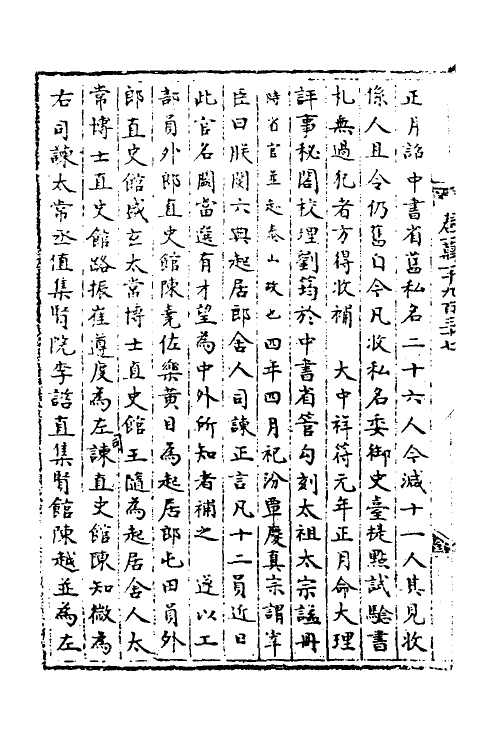 正月詔中書省舊私名二十六人今減十一人其見收
係人且令仍舊自今凡收私名委御史臺提點試驗書
札無過犯者方得收補　大中祥符元年正月命大理
評事秘閣校理劉筠於中書省管勾刻太祖太宗諡冊
時省官並赴泰山故也四年四月祀汾覃慶真宗謂宰
臣曰朕閱六典起居郎舍人司諫正言凡十二員近日
此官名闕當選有才望為中外所知者補之　遂以工
部員外郎直史館陳堯佐樂黃目為起居郎屯田員外
郎直史館盛玄太常博士直史館王隨為起居舍人太
常博士直史館路振崔遵度為左司諫直史館陳知微為
右司諫太常丞值集賢院李諮直集賢館陳越並為左
卷萬一千九百三七